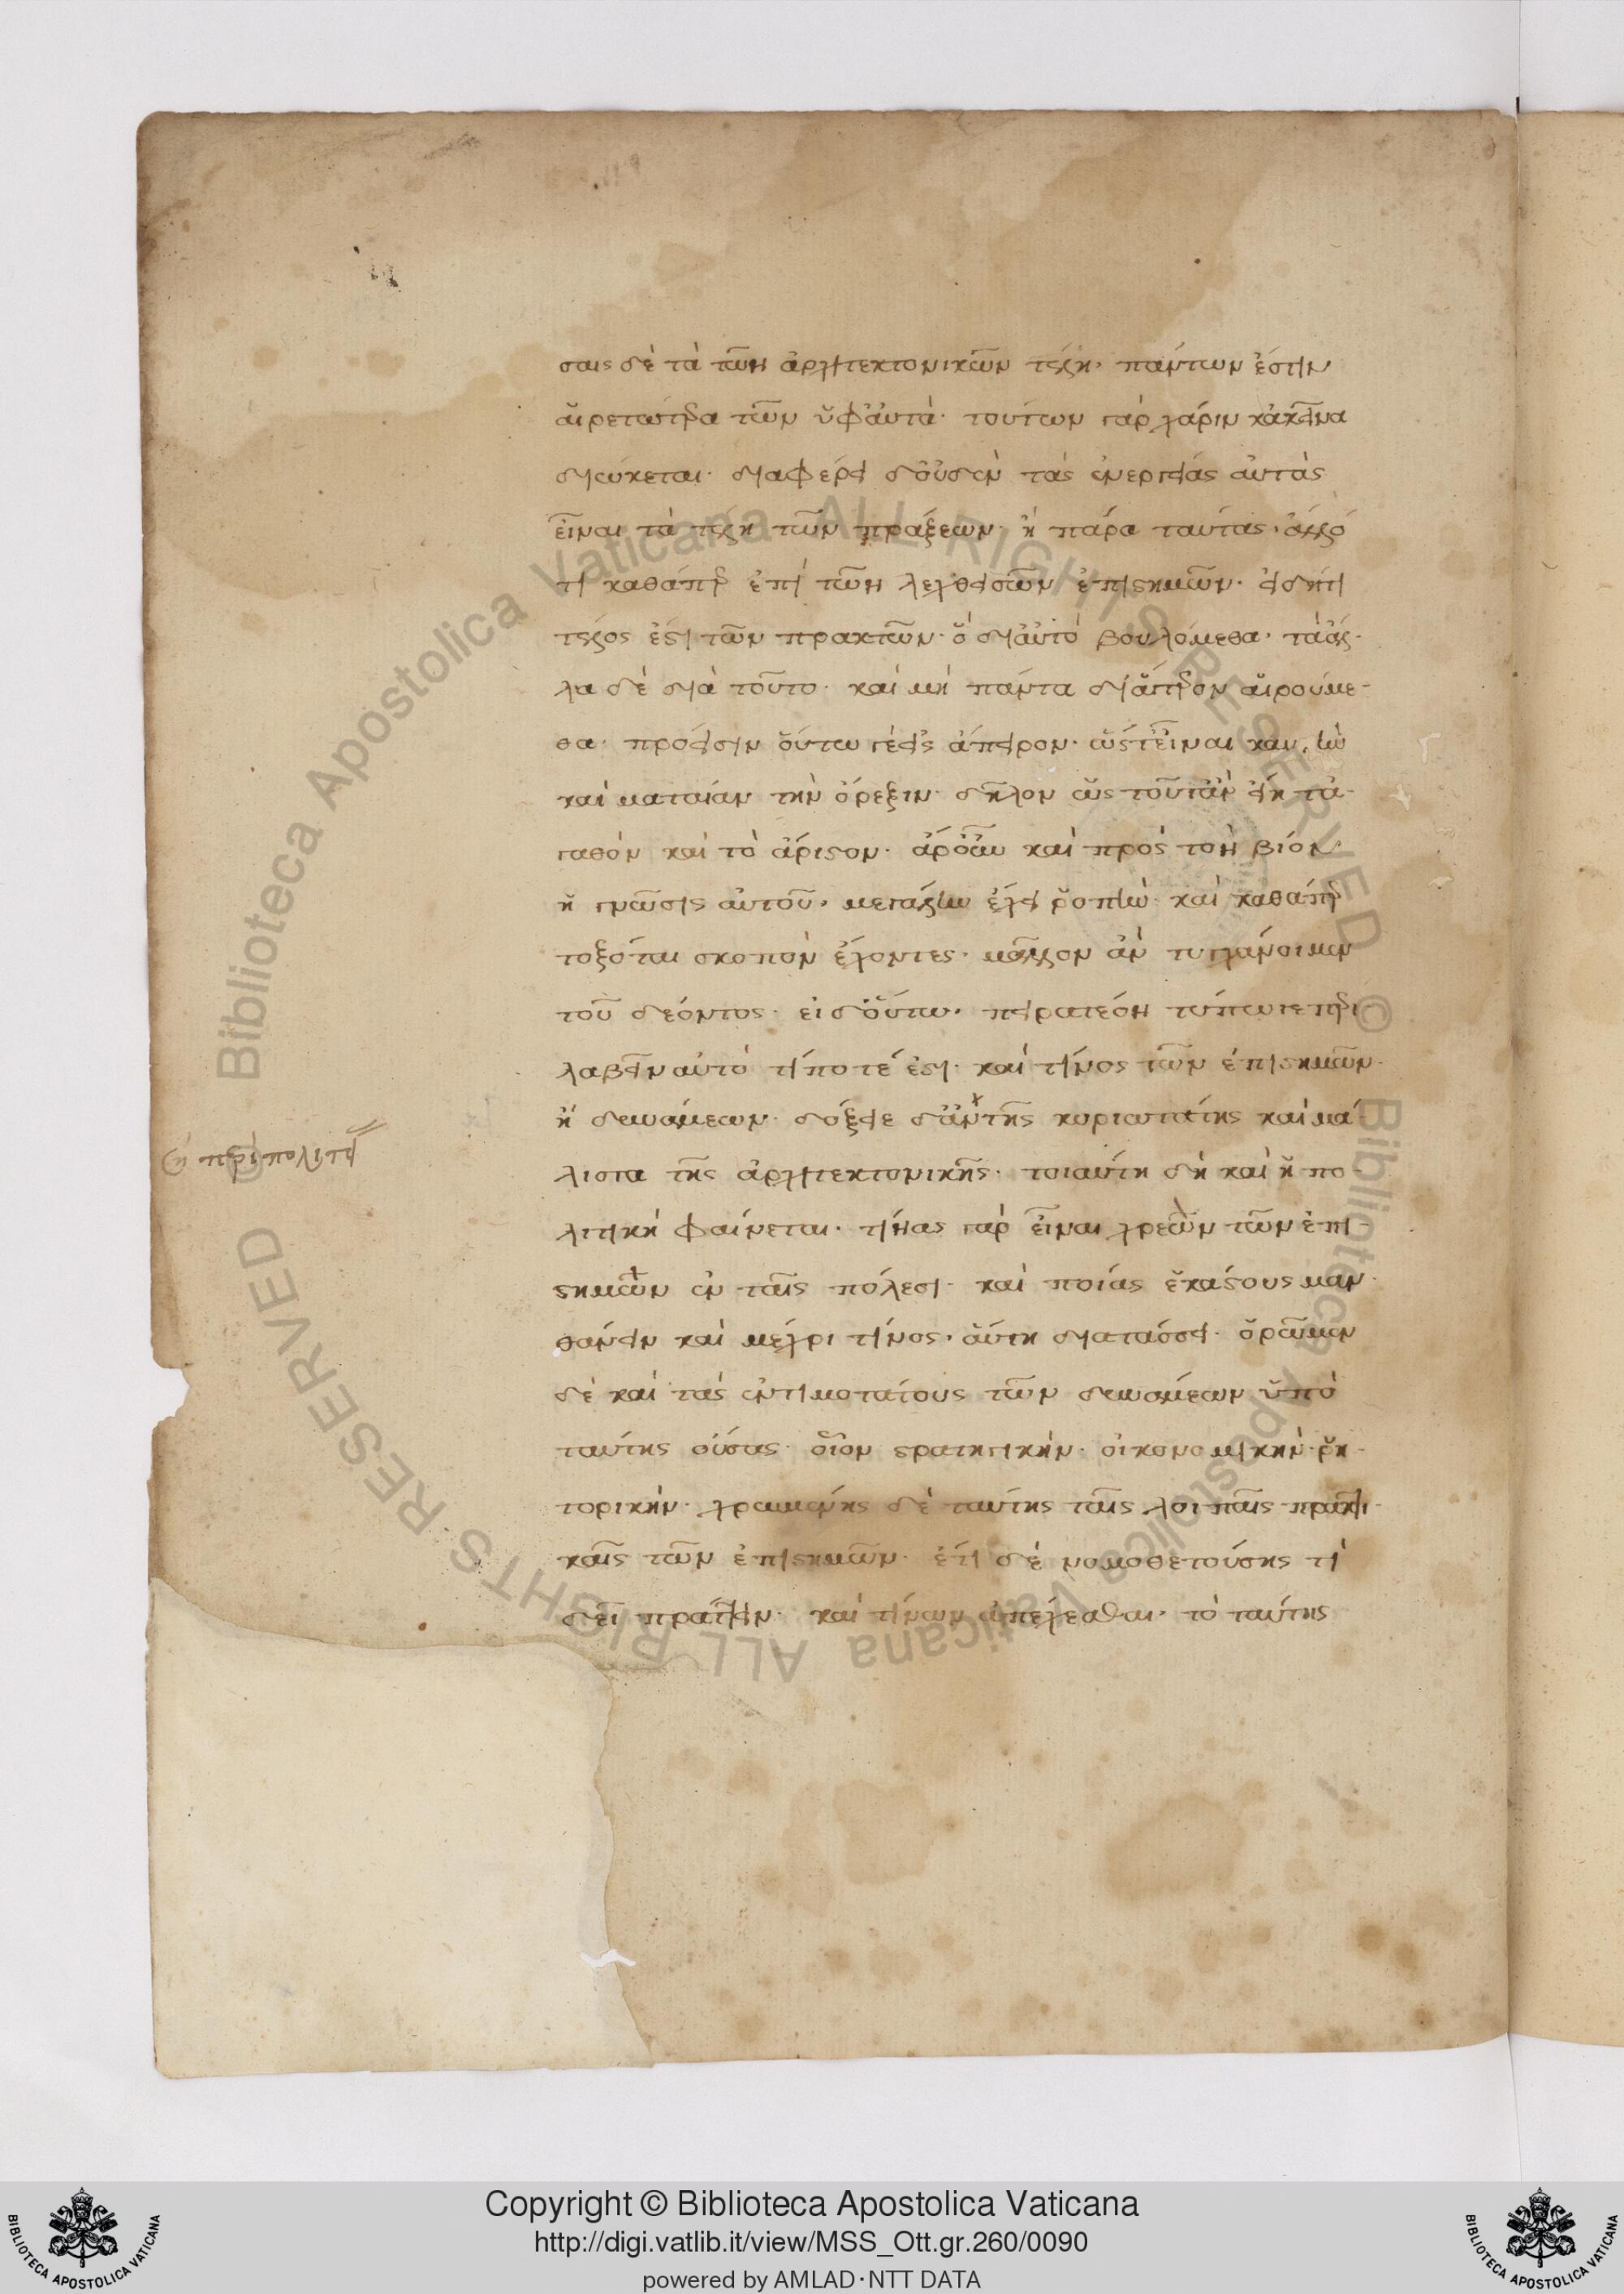 σαις δὲ τὰ τῶν ἀρχιτεκτονικῶν τέλη· πάντων ἐστὶν
αἱρετώτερα τῶν ὑφ᾽ αὑτά· τούτων γὰρ χάριν κἀκεῖνα
διώκεται· διαφέρει δ᾽ οὐδὲν τὰς ἐνεργείας αὐτὰς
εἶναι τὰ τέλη τῶν πράξεων· ἢ παρὰ ταύτας· ἄλλό
τι καθάπερ ἐπὶ τῶν λεχθεισῶν ἐπιστημῶν· εἰ δή τι
τέλος ἐστὶ τῶν πρακτῶν· ὃ δι᾽ αὐτὸ βουλόμεθα· τὰ ἄλ-
λα δὲ διὰ τοῦτο· καὶ μὴ πάντα δι᾽ ἕτερον αἱρούμε-
θα· πρόεισιν οὕτω γ᾽ εἰς ἄπειρον· ὥστ᾽ εἶναι κενὴν
καὶ ματαίαν τὴν ὄρεξιν· δῆλον ὡς τοῦτ᾽ ἂν εἴη τἀ-
γαθὸν καὶ τὸ ἄριστον· ἆρ᾽ οὖν καὶ πρὸς τὸν βίον
ἡ γνῶσις αὐτοῦ· μεγάλην ἔχει ῥοπήν· καὶ καθάπερ
τοξόται σκοπὸν ἔχοντες· μᾶλλον ἂν τυγχάνοιμεν
τοῦ δέοντος· εἰ δ᾽ οὕτω· πειρατέον τύπωι γε περι-
λαβεῖν αὐτὸ τί ποτέ ἐστι· καὶ τίνος τῶν ἐπιστημῶν·
ἢ δυνάμεων· δόξειε δ᾽ ἂν τῆς κυριωτάτης καὶ μά-
λιστα τῆς ἀρχιτεκτονικῆς· τοιαύτη δὴ καὶ ἡ πο-
λιτικὴ φαίνεται· τίνας γὰρ εἶναι χρεὼν τῶν ἐπι-
στημῶν ἐν ταῖς πόλεσι· καὶ ποίας ἑκάστους μαν-
θάνειν καὶ μέχρι τίνος· αὕτη διατάσσει· ὁρῶμεν
δὲ καὶ τὰς ἐντιμοτάτους τῶν δυνάμεων ὑπὸ
ταύτης οὔσας· οἷον στρατηγικήν· οἰκονομικήν· ῥη-
τορικήν· χρωμένης δὲ ταύτης ταῖς λοιπαῖς πρακτι-
καῖς τῶν ἐπιστημῶν· ἔτι δὲ νομοθετούσης τί
δεῖ πράττειν· καὶ τίνων ἀπέχεσθαι· τὸ ταύτης
Copyright © Biblioteca Apostolica Vaticana
http://digi.vatlib.it/view/MSS_Ott.gr.260/0090
powered by AMLAD·NTT DATA
BIBLIOTECA APOSTOLICA VATICANA
BIBLIOTECA APOSTOLICA VATICANA
© Biblioteca Apostolica Vaticana ALL RIGHTS RESERVED
© Biblioteca Apostolica Vaticana ALL RIGHTS RESERVED